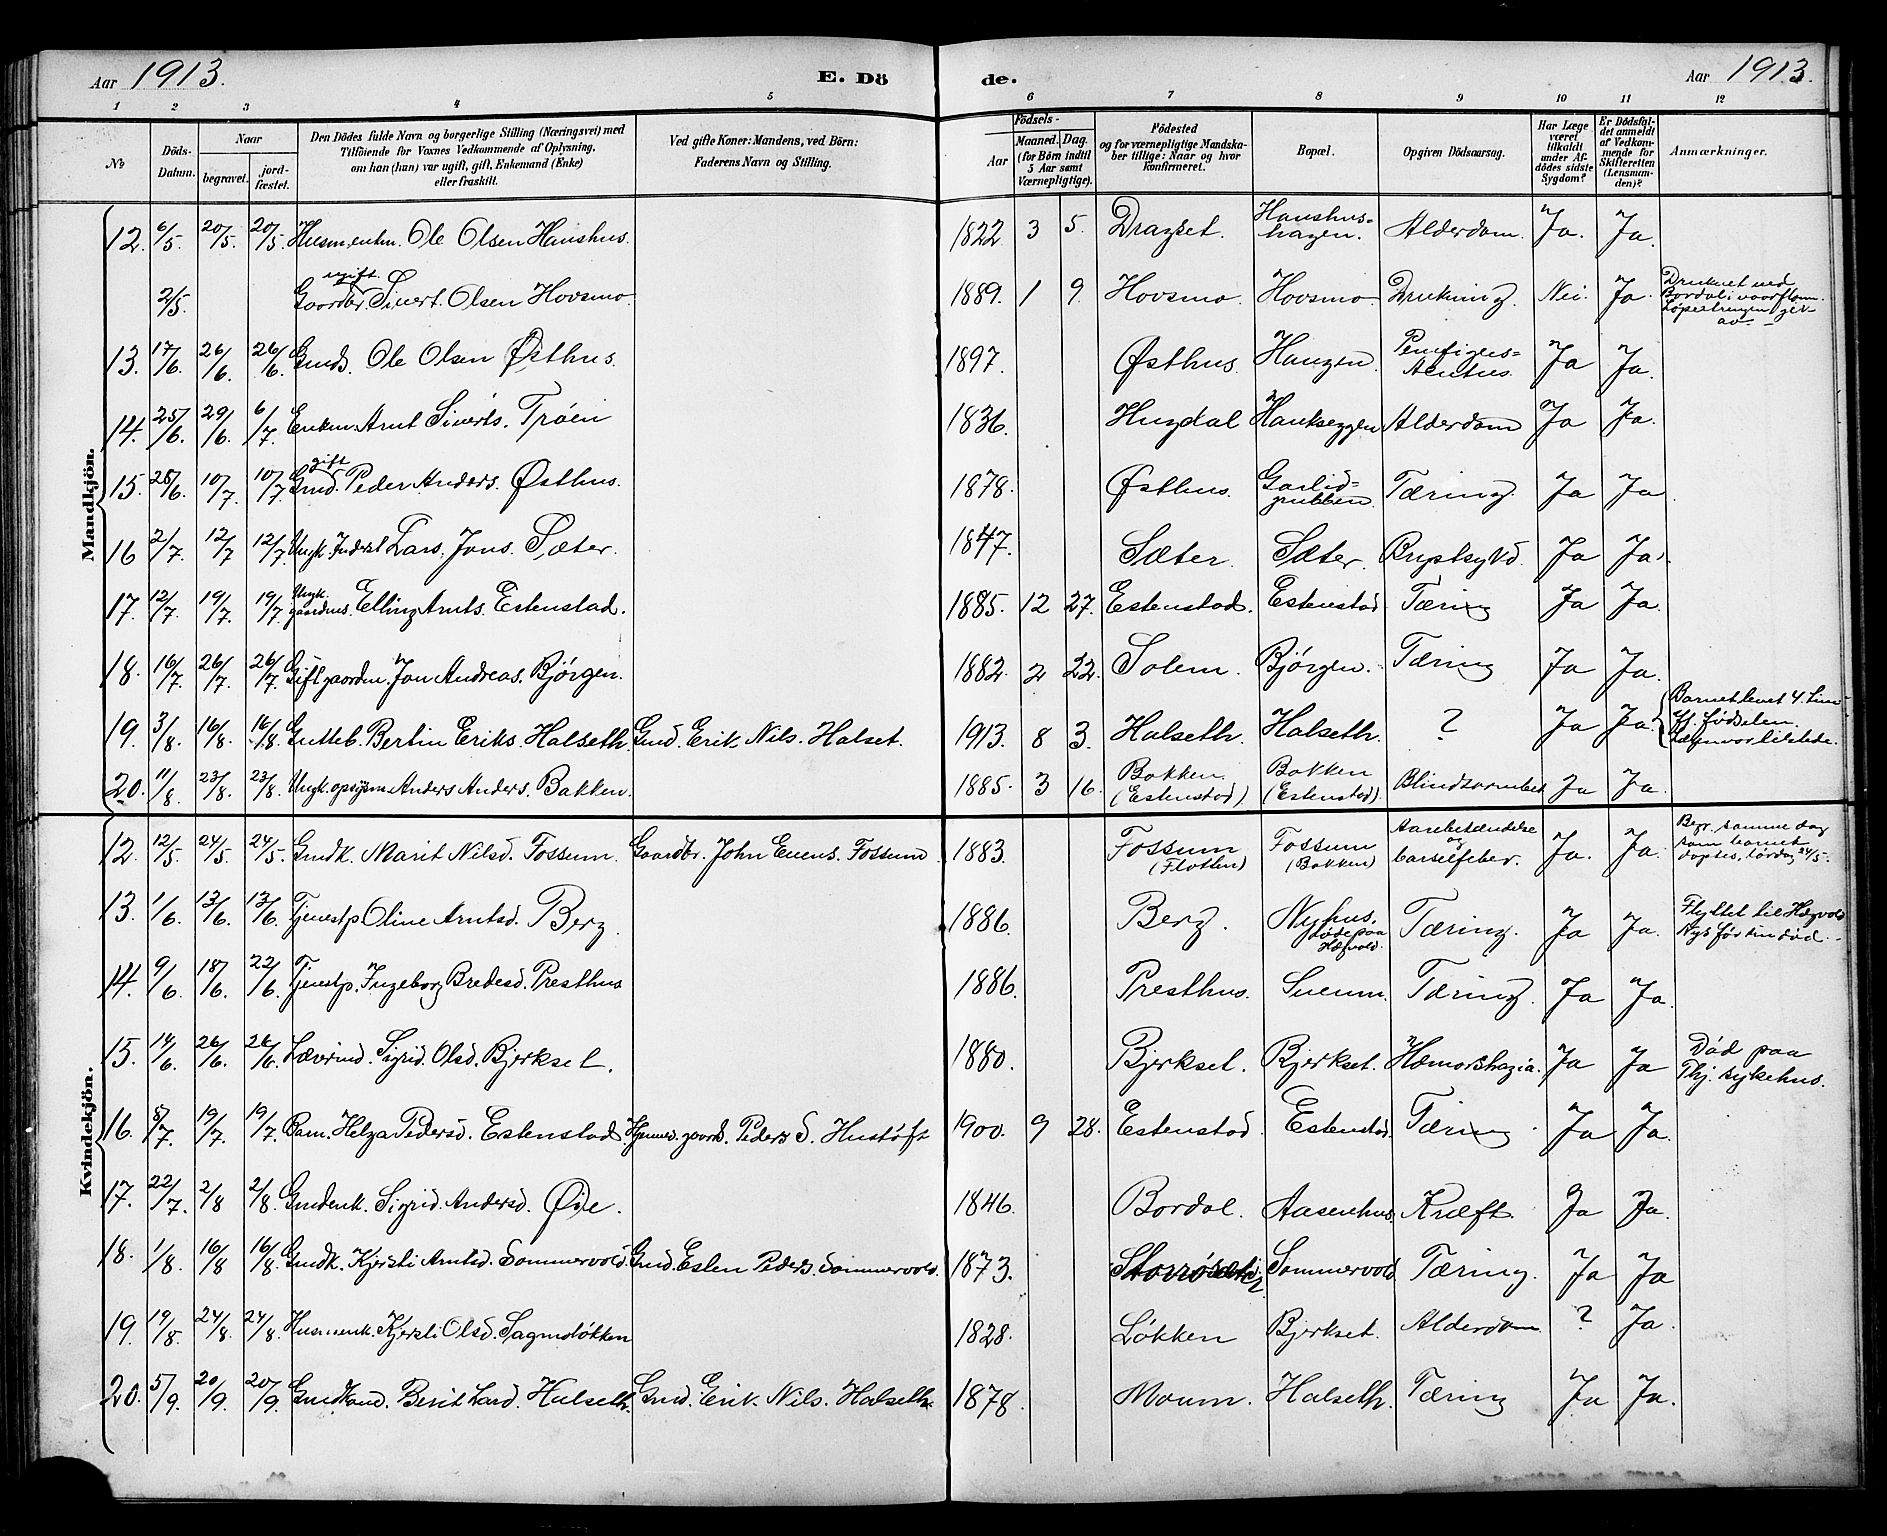 Aar 1913. E. Dö de. Aar 1913.
1 2 3 4 5 6 7 8 9 10 11 12
No
Döds-Datum.
Naar begravet. jord-fæstet.
Den Dödes fulde Navn og borgerlige Stilling (Næringsvei) med
Tilföiende for Voxnes Vedkommende af Oplysning,
om han (hun) var ugift, gift, Enkemand (Enke)
eller fraskilt.
Ved gifte Koner: Mandens, ved Börn:
Faderens Navn og Stilling.
Födsels-
Aar
Maaned. Dag.
(for Börn indtil 5 Aar samt Værnepligtige).
Födested
og for værnepligtige Mandskaber tillige: Naar og hvor konfirmeret.
Bopæl.
Opgiven Dödsaarsag.
Har Læge været tilkaldt under Afdödes sidste Sygdom?
Er Dödsfaldet anmeldt af Vedkommende for Skifteretten (Lensmanden)?
Anmærkninger.
Mandkjön.
12. 6/5. 20/5. 20/5. Husm.enkm. Ole Olsen Haushus. 1822 3 5. Dragset. Haushus-hagen. Alderdom. Ja. Ja.
2/5. Gaardbr. ugift. Sivert Olsen Hovsmo. 1889. 1 9. Hovsmo. Hovsmo. Drukning. Nei. Ja. Druknet ved Bordal i vaarflom.
13. 17/6. 26/6 26/6. Gmds. Ole Olsen Østhus. 1897. Østhus. Haugen. Pemfigus- Acutus. Ja Ja.
14. 25/6. 29/6. 6/7. Enkem. Arnt Siverts. Trøen 1836. Hugdal Haukseggen Alderdom Ja Ja.
15. 28/6. 10/7. 10/7. Gmd. gift Peder Anders. Østhus. 1878. Østhus. Garlid-grubben Tæring. Ja Ja.
16 2/7. 12/7 12/7. Ungk. Inderst Lars. Jons. Sæter. 1847. Sæter. Sæter. Ja Ja.
17. 12/7. 19/7. 19/7. Ungk. gaardms. Elling Arnts. Estenstad. 1885. 12 27. Estenstad. Estenstad Tæring Ja Ja.
18. 16/7. 26/7. 26/7. Gift gaardm. Jon Andreas. Bjørgen. 1882. 2 22. Solem. Bjørgen. Tæring Ja Ja.
19. 3/8. 16/8. 16/8. Gutteb. Bertin Eriks. Halseth. Gmd. Erik Nils. Halset. 1913. 8 3. Halseth. Halseth. ? Ja Ja. Barnet levet 4 Timer ef. fødselen. Lægen var tilstede.
20. 11/8. 23/8. 23/8. Ungk. opsysm. Anders Anders. Bakken. 1885. 3 16. Bakken (Estenstad). Bakken (Estenstad). Blindtarmbet. Ja Ja.
Kvindekjön.
12. 12/5. 24/5. 24/5. Gmdk. Marit Nilsd. Fossum. Gaardbr. John Evens. Fossum 1883. Fossum (Flotten) Fossum (Bakken) Aarebetændelse og barselfeber. Ja. Ja. Begr. samme dag som barnet døptes, lørdag 24/5.
13. 1/6. 13/6. 13/6. Tjenestp Oline Arntsd. Berg. 1886. Berg. Nyhus, døde paa Hægvold. Tæring. Ja Ja. Flyttet til Hægvold Nys før sin død.
14. 9/6. 18/6. 22/6. Tjenestp. Ingeborg Bredesd. Presthus 1886. Presthus. Sveum. Tæring. Ja Ja.
15. 14/6. 26/6. 26/6. Lærerind. Sigrid. Olsd. Bjerkset. 1880. Bjerkset. Bjerkset. Hæmorrhagia. Ja Ja Død paa Thj. sykehus.
16. 8/7. 19/7. 19/7. Barn. Helga Pedersd. Estenstad Peder S. Hustøft 1900. 9 28. Estenstad. Estenstad. Tæring. Ja Ja.
17. 22/7. 2/8 2/8. Gmdenk. Sigrid. Andersd. Øie. 1846. Bordal. Aasenhus. Kræft. Ja Ja.
18. 1/8. 16/8 16/8. Gmdk. Kjersti Arntsd. Sommervold. Gmd. Esten Peders. Sommervold. 1873. Sommervold Tæring. Ja Ja
19. 19/8. 24/8. 24/8. Husmenk. Kjersti Olsd. Sagmoløkken 1828. Løkken Bjerkset. Alderdom ? Ja.
20. 5/9. 20/9. 20/9. Gmdkand. Berit Larsd. Halseth. Gmd. Erik. Nils. Halseth. 1878. Moum. Halseth. Tæring Ja Ja.